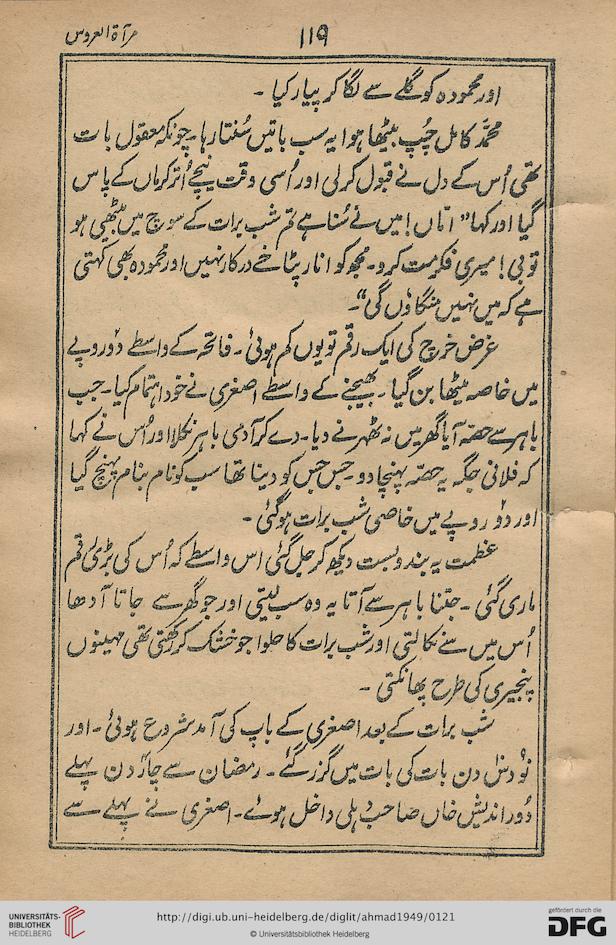 مرآۃ العروس
۱۱۹
اور محمودہ کو گلے سے لگا کر پیار کیا۔
محمّد کامل چُپ بیٹھا ہوا یہ سب باتیں سُنتا رہا۔ چونکہ معقول بات
تھی اُس کے دل نے قبول کر لی اور اُسی وقت نیچے اُتر کر ماں کے پاس
گیا اور کہا ”امّاں! میں نے سُنا ہے تم شب برات کے سوچ میں بیٹھی ہو
تو بی! میری فکر مت کرو۔ مجھ کو انار پٹاخے درکار نہیں اور محمودہ بھی کہتی
ہے کہ میں نہیں منگاؤں گی“۔
غرض خرچ کی ایک رقم تو یوں کم ہوئی۔ فاتحہ کے واسطے دو روپے
میں خاصہ میٹھا بن گیا۔ بھیجنے کے واسطے اصغری نے خود اہتمام کیا۔ جب
باہر سے حصّہ آیا گھر میں نہ ٹھہرنے دیا۔ دے کر آدمی باہر نکلا اور اُس نے کہا
کہ فلانی جگہ یہ حصّہ پہنچا دو۔ جس جس کو دینا تھا سب کو نام بنام پہنچ گیا
اور دو روپے میں خاصی شب برات ہو گئی۔
عظمت یہ بندوبست دیکھ کر جل گئی اس واسطے کہ اُس کی بڑی رقم
ماری گئی۔ جتنا باہر سے آتا یہ وہ سب لیتی اور جو گھر سے جاتا آدھا
اُس میں سے نکالتی اور شب برات کا حلوا جو خشک کر رکھتی تھی مہینوں
پنجیری کی طرح پھانکتی۔
شب برات کے بعد اصغری کے باپ کی آمد شروع ہوئی۔ اور
نو دس دن بات کی بات میں گزر گئے۔ رمضان سے چار دن پہلے
دُور اندیش خاں صاحب دہلی داخل ہوئے۔ اصغری نے پہلے سے
UNIVERSITÄTS-
BIBLIOTHEK
HEIDELBERG
http://digi.ub.uni-heidelberg.de/diglit/ahmad1949/0121
© Universitätsbibliothek Heidelberg
gefördert durch die
DFG